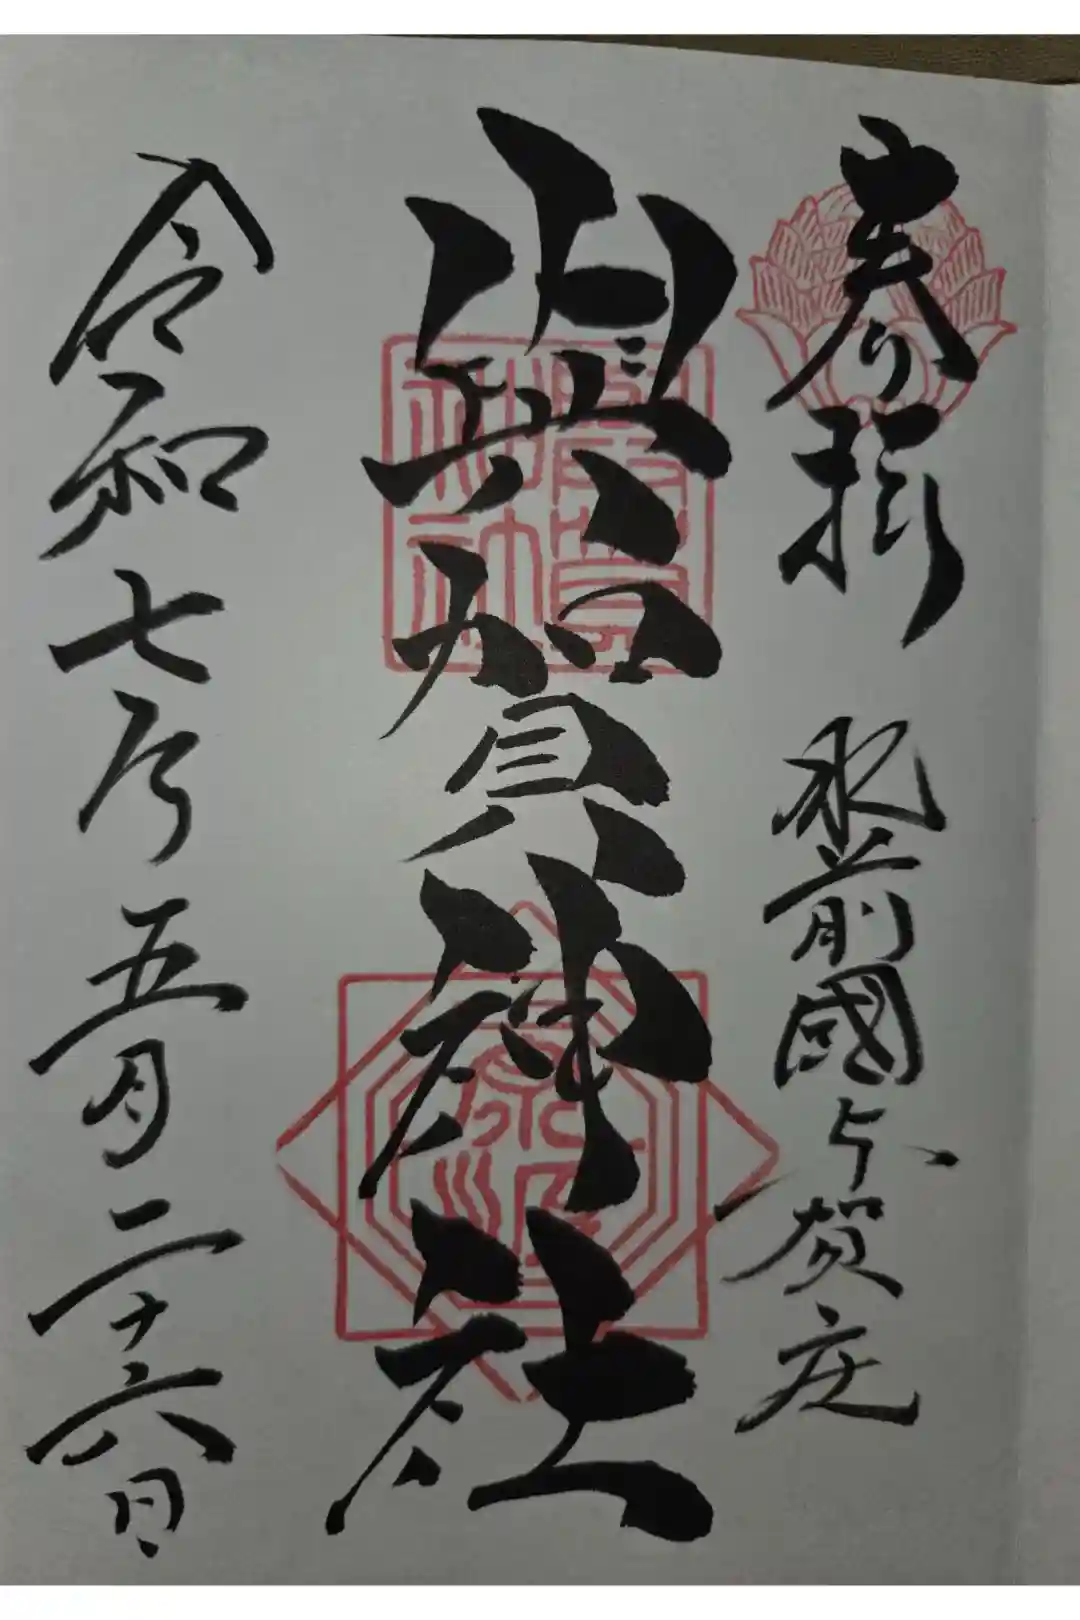 参拝 肥前國与賀庄
與賀神社
令和七年五月二十六日